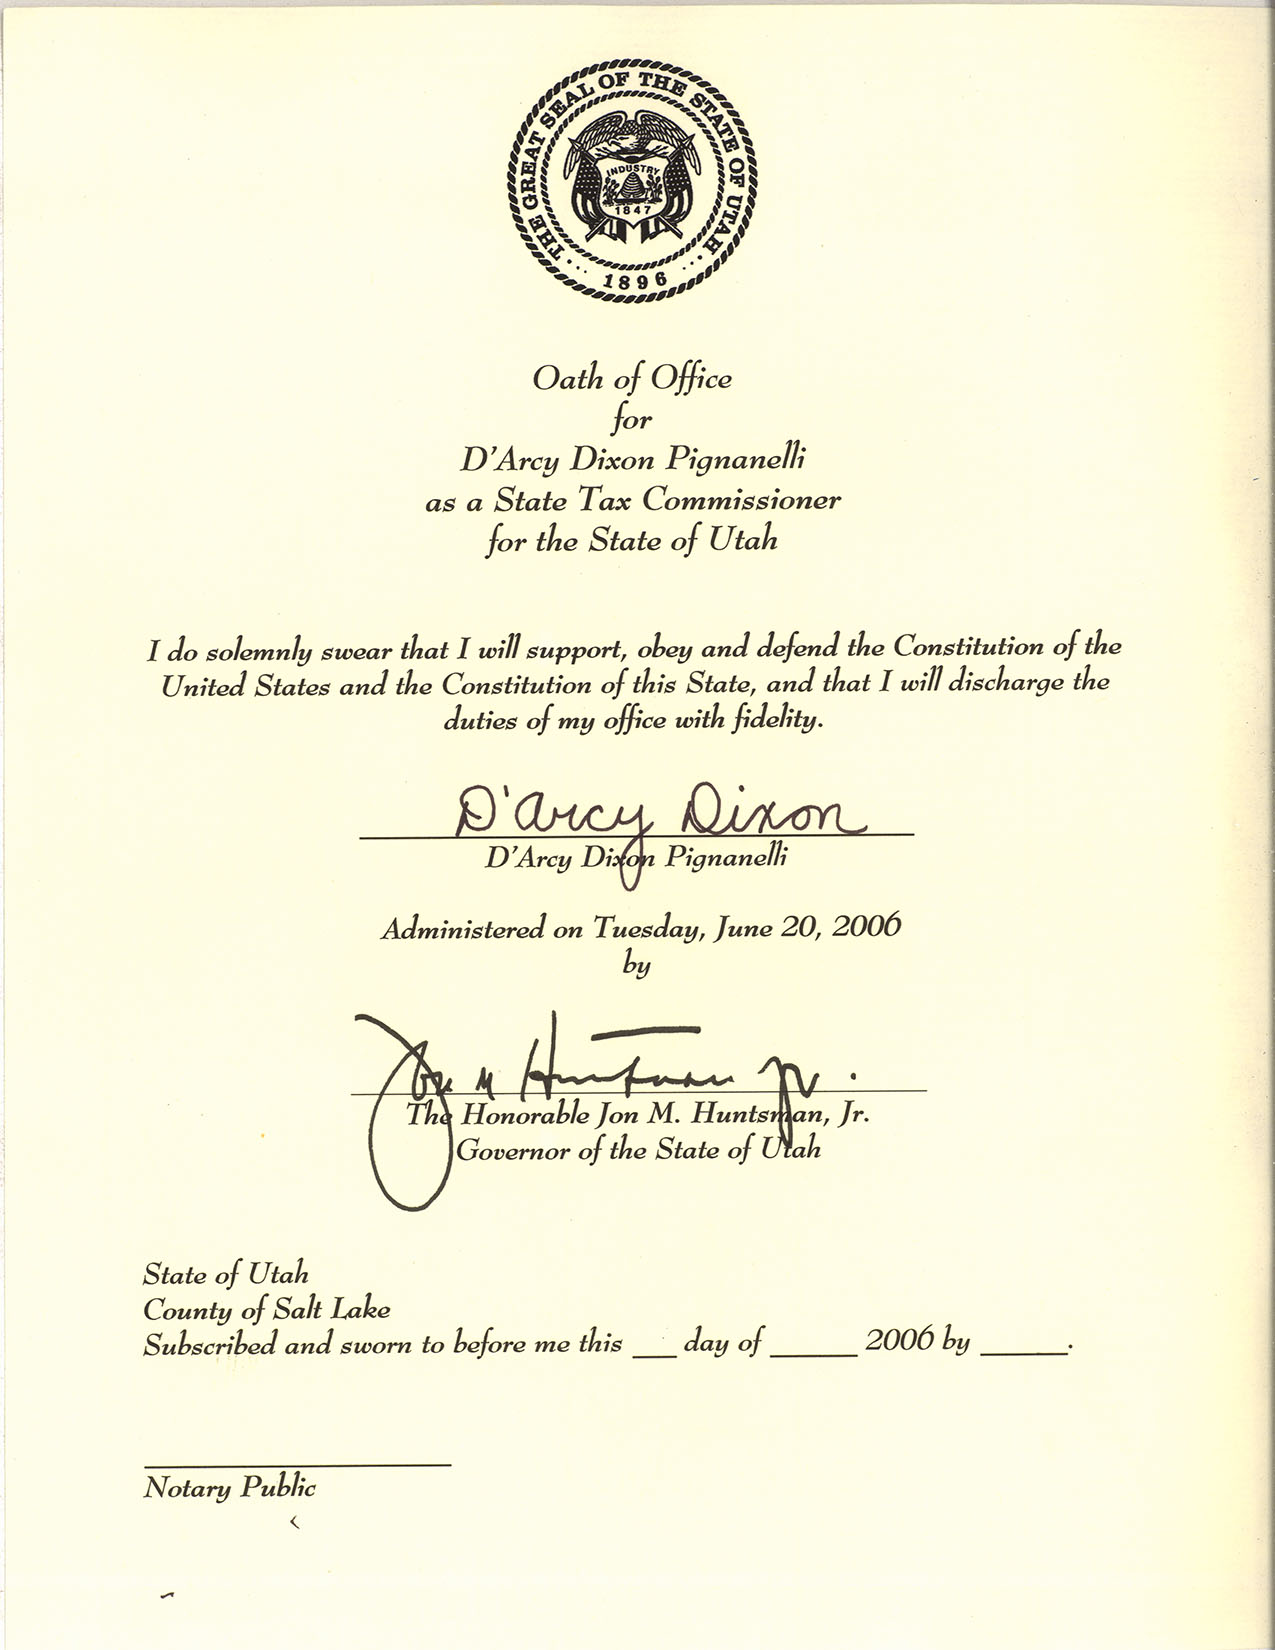 THE GREAT SEAL OF THE STATE OF UTAH
INDUSTRY
1847
1896
Oath of Office
for
D'Arcy Dixon Pignanelli
as a State Tax Commissioner
for the State of Utah
I do solemnly swear that I will support, obey and defend the Constitution of the
United States and the Constitution of this State, and that I will discharge the
duties of my office with fidelity.
D'Arcy Dixon
D'Arcy Dixon Pignanelli
Administered on Tuesday, June 20, 2006
by
Jon M Huntsman Jr.
The Honorable Jon M. Huntsman, Jr.
Governor of the State of Utah
State of Utah
County of Salt Lake
Subscribed and sworn to before me this ___ day of ______ 2006 by ______.
Notary Public